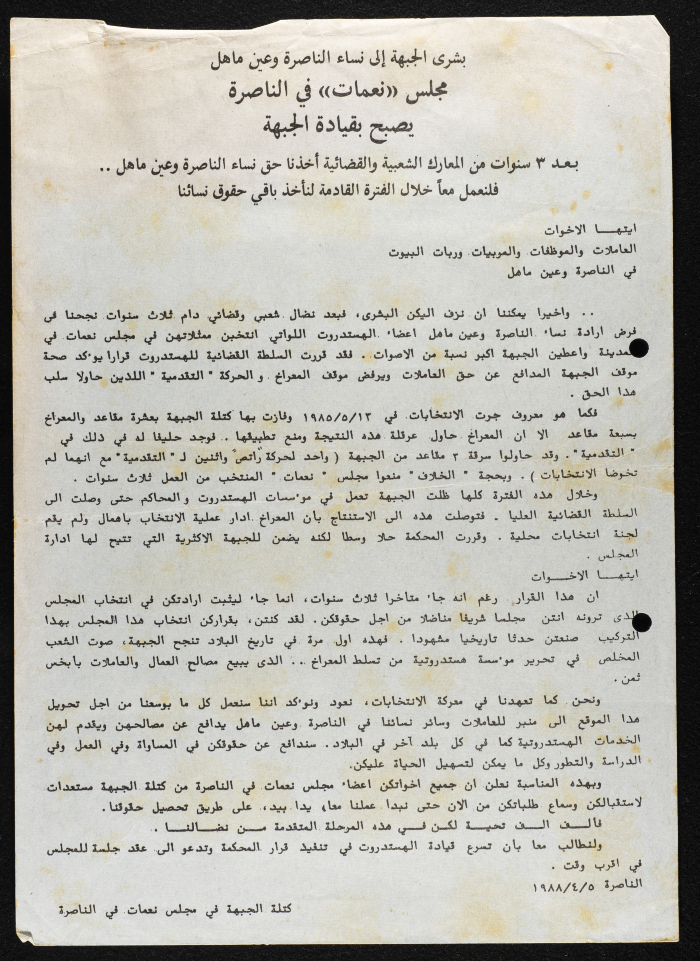 بشرى الجبهة إلى نساء الناصرة وعين ماهل
مجلس «نعمات» في الناصرة
يصبح بقيادة الجبهة
بعد ٣ سنوات من المعارك الشعبية والقضائية أخذنا حق نساء الناصرة وعين ماهل ..
فلنعمل معاً خلال الفترة القادمة لنأخذ باقي حقوق نسائنا
ايتهـــا الاخوات
العاملات والموظفات والمربيات وربات البيوت
في الناصرة وعين ماهل
.. واخيرا يمكننا ان نزف اليكن البشرى، فبعد نضال شعبي وقضائي دام ثلاث سنوات نجحنا في
فرض ارادة نساء الناصرة وعين ماهل اعضاء الهستدروت اللواتي انتخبن ممثلاتهن في مجلس نعمات في
المدينة واعطين الجبهة اكبر نسبة من الاصوات . فقد قررت السلطة القضائية للهستدروت قرارا يؤكد صحة
موقف الجبهة المدافع عن حق العاملات ويرفض موقف المعراخ والحركة "التقدمية" اللذين حاولا سلب
هذا الحق .
فكما هو معروف جرت الانتخابات في ١٩٨٥/٥/١٣ وفازت بها كتلة الجبهة بعشرة مقاعد والمعراخ
بسبعة مقاعد الا ان المعراخ حاول عرقلة هذه النتيجة ومنع تطبيقها .. فوجد حليفا له في ذلك في
"التقدمية". وقد حاولوا سرقة ٣ مقاعد من الجبهة (واحد لحركة "راتص" واثنين لـ "التقدمية" مع انهما لم
تخوضا الانتخابات) . وبحجة "الخلاف" منعوا مجلس "نعمات" المنتخب من العمل ثلاث سنوات .
وخلال هذه الفترة كلها ظلت الجبهة تعمل في مؤسسات الهستدروت والمحاكم حتى وصلت الى
السلطة القضائية العليا . فتوصلت هذه الى الاستنتاج بأن المعراخ ادار عملية الانتخاب باهمال ولم يقم
لجنة انتخابات محلية . وقررت المحكمة حلا وسطا لكنه يضمن للجبهة الاكثرية التي تتيح لها ادارة
المجلس .
ايتهـا الاخـــوات
ان هذا القرار رغم انه جاء متاخرا ثلاث سنوات، انما جاء ليثبت ارادتكن في انتخاب المجلس
الذى ترونه انتن مجلسا شريفا مناضلا من اجل حقوقكن. لقد كنتن، بقراركن انتخاب هذا المجلس بهذا
التركيب صنعتن حدثا تاريخيا مشهودا . فهذه اول مرة في تاريخ البلاد تنجح الجبهة، صوت الشعب
المخلص في تحرير مؤسسة هستدروتية من تسلط المعراخ ... الذى يبيع مصالح العمال والعاملات بأبخس
ثمن .
ونحن كما تعهدنا في معركة الانتخابات، نعود ونؤكد اننا سنعمل كل ما بوسعنا من اجل تحويل
هذا الموقع الى منبر للعاملات وسائر نسائنا في الناصرة وعين ماهل يدافع عن مصالحهن ويقدم لهن
الخدمات الهستدروتية كما في كل بلد آخر في البلاد. سندافع عن حقوقكن في المساواة وفي العمل وفي
الدراسة والتطور وكل ما يمكن لتسهيل الحياة عليكن.
وبهذه المناسبة نعلن ان جميع اخواتكن اعضاء مجلس نعمات في الناصرة من كتلة الجبهة مستعدات
لاستقبالكن وسماع طلباتكن من الان حتى نبدا عملنا معا، يدا بيد، على طريق تحصيل حقوقنا.
فألـف الـف تحيـة لكـن فـي هذه المرحلة المتقدمة مـن نضـالنـا .
ولنطالب معا بأن تسرع قيادة الهستدروت في تنفيذ قرار المحكمة وتدعو الى عقد جلسة للمجلس
في اقرب وقت .
الناصرة ١٩٨٨/٤/٥
كتلة الجبهة في مجلس نعمات في الناصرة